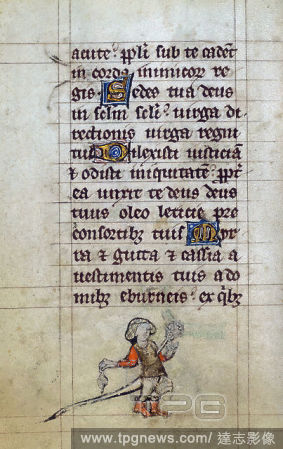 acute: ppli sub te cadent
in corda inimicor re
gis Sedes tua deus
in sclm scli: uirga di
rectionis uirga regni
tui Dilexisti iusticiā
& odisti iniquitatē: ppt
ea unxit te deus deus
tuus oleo leticie pre
consortibus tuis Myr
ra & gutta & cassia a
uestimentis tuis a do
mibz eburneis: ex qbz
PG
www.tpgnews.com/ 達志影像